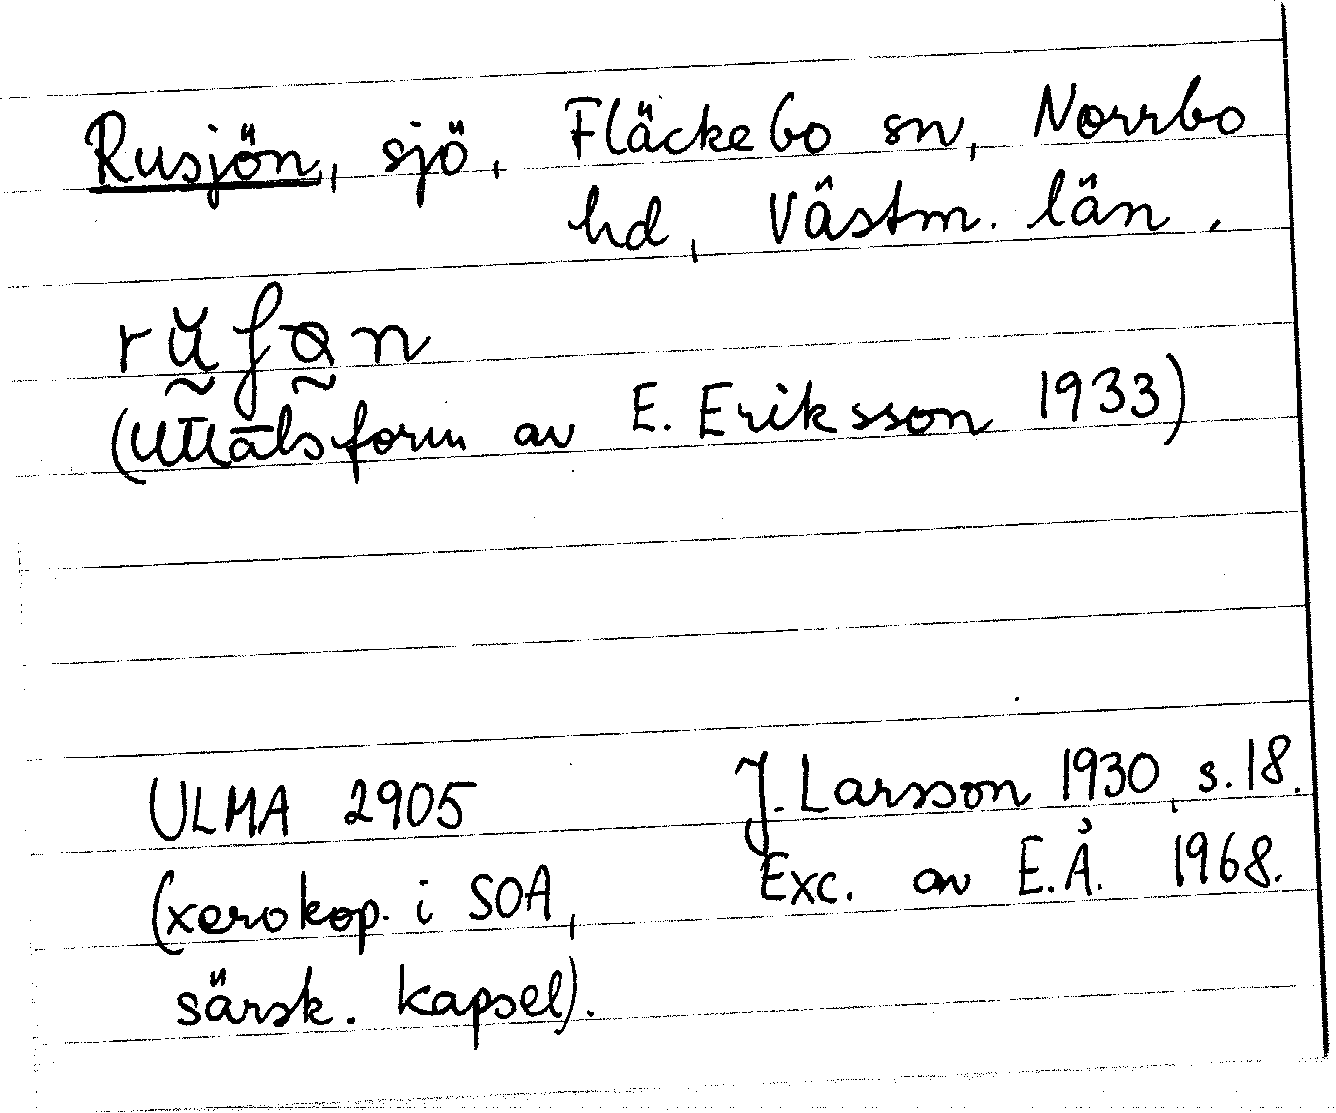 Rusjön, sjö, Fläckebo sn, Norrbo
hd, Västm. län.
(Uttalsform av E. Eriksson 1933)
ULMA 2905
(xerokop. i SOA,
särsk. kapsel).
J. Larsson 1930, s. 18.
Exc. av E.Å. 1968.